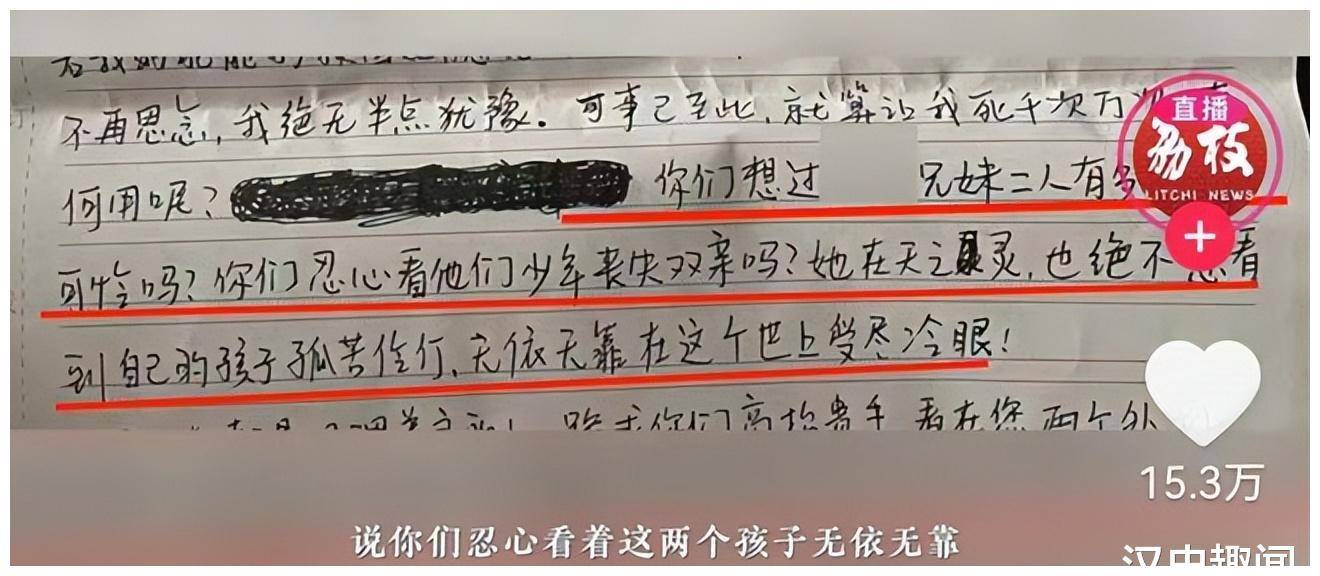 不再思念,我绝无半点犹豫。可事已至此,就算让我死千次万
何用呢? 你们想过 兄妹二人有
可怜吗?你们忍心看他们少年丧失双亲吗?她在天之灵,也绝不 看
到自己的孩子孤苦伶仃、无依无靠在这个世上受尽冷眼!
你们高抬贵手 看在您两个外
直播
荔枝
LITCHI NEWS
15.3万
说你们忍心看着这两个孩子无依无靠
汉中趣闻